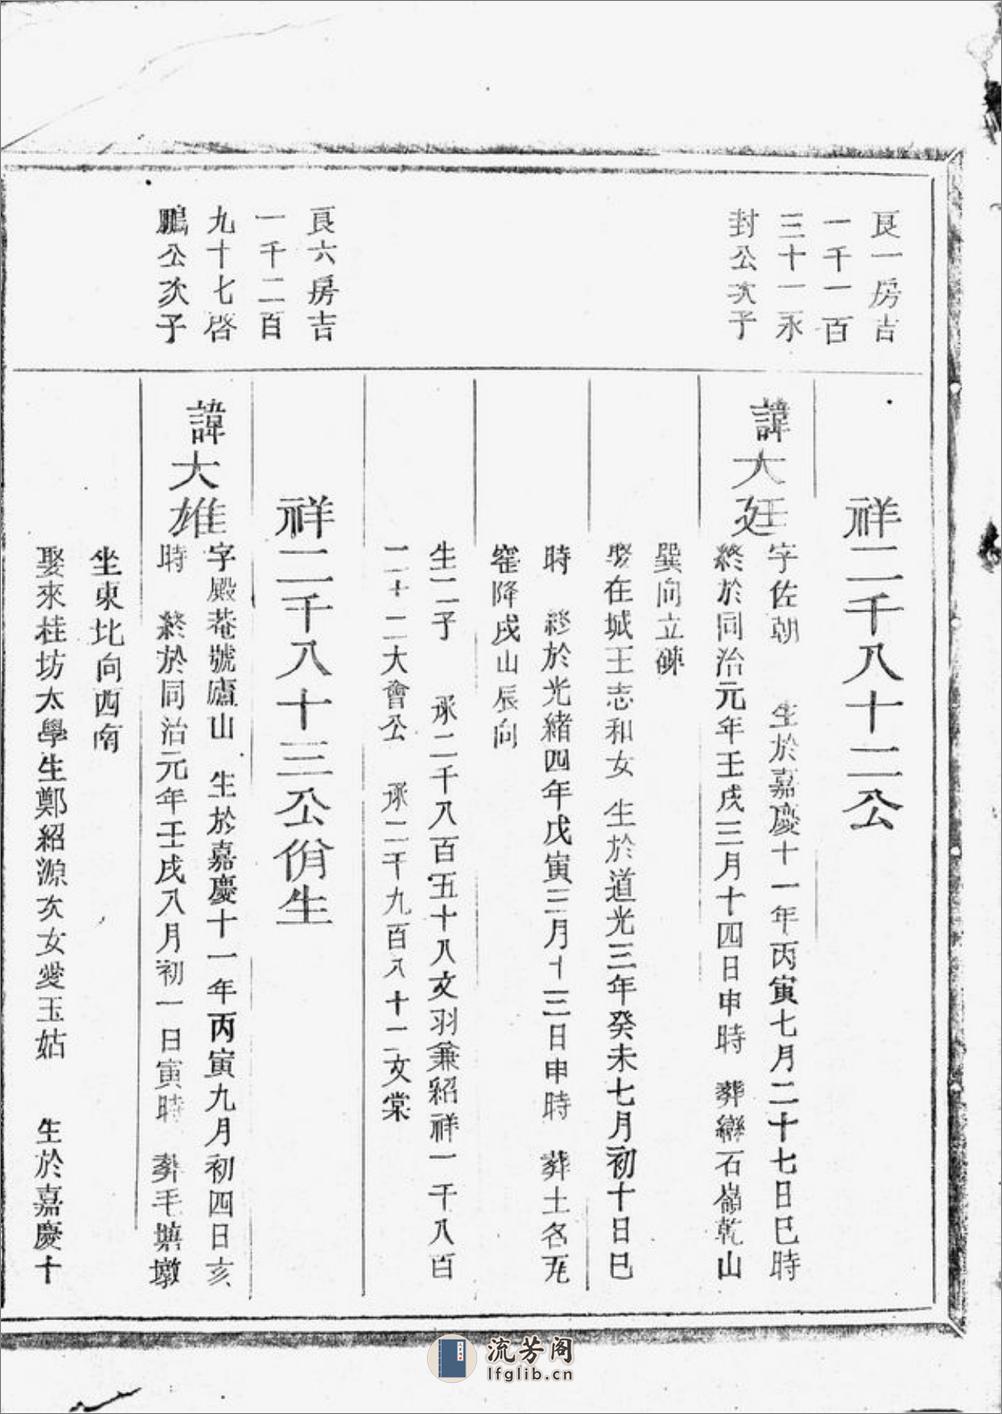 良一房吉
一千一百
三十一永
封公次子
祥二千八十二公
諱大廷
字佐朝 生於嘉慶十一年丙寅七月二十七日巳時
終於同治元年壬戌三月十四日申時 葬 石嶺乾山
巽向立碑
娶在城王志和女 生於道光三年癸未七月初十日巳
時 終於光緒四年戊寅三月十三日申時 葬土名瓦
窰降戌山辰向
生二子 承二千八百五十八文羽兼紹祥一千八百
二十二大會公 承二千九百八十二文棠
良六房吉
一千二百
九十七啓
鵬公次子
祥二千八十三公佾生
諱大雄
字殿菴號廬山 生於嘉慶十一年丙寅九月初四日亥
時 終於同治元年壬戌八月初一日寅時 葬毛塘墩
坐東北向西南
娶來桂坊太學生鄭紹源次女愛玉姑 生於嘉慶十
流芳阁
lfglib.cn